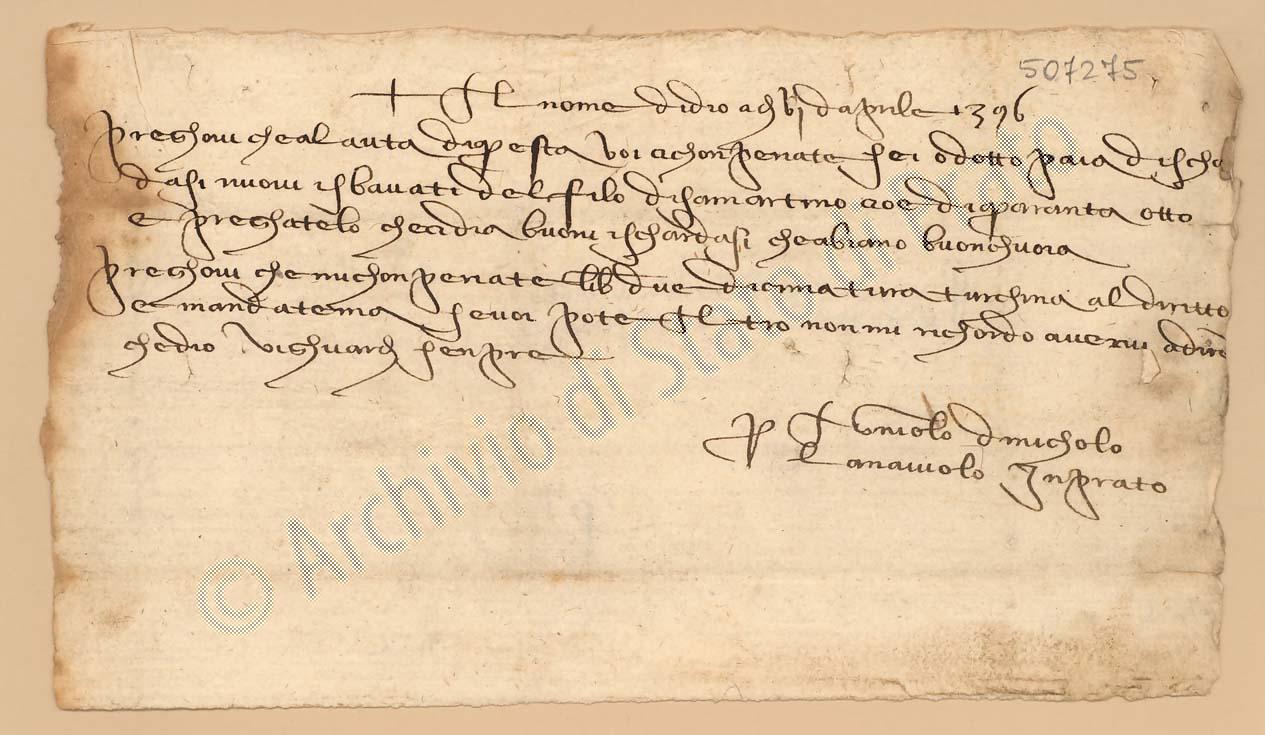 507275
+ Il nome didio adi vj daprile 1396
preghovi che alauta diquesta voi cichonperiate sei o detto paia discha
dasi nuovi isbavati del filo disamartino cioe diquaranta otto
e preghatelo checidia buoni ischardasi cheabiano buonchuoia
preghovi che michonperiate lib due di cimatura turchina al diritto
e mandatema se voi potete Iltro non mi richordo avervi adire
chedio vighuardi senpre
P vniolo dinicholo
Lanaiuolo Inprato
© Archivio di Stato di Prato